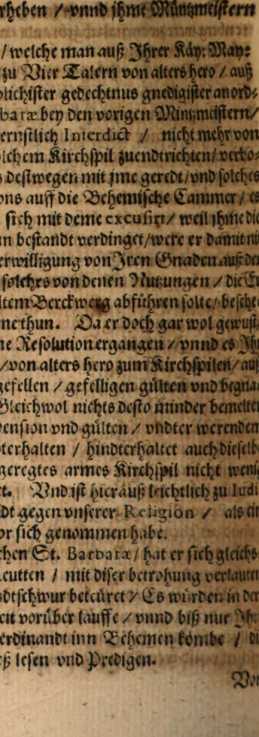 rheben / vnnd jhme Müntzmeistern
/ welche man auß Jhrer Käy: May:
zu Vier Talern von alters hero / auß
blichister gedechtnus gnedigister anord-
baræ bey den vorigen Müntzmeistern /
ernstlich Interdict / nicht mehr von
lchem Kirchspil zuendtrichten / verbo-
s destwegen mit jme geredt / vnd solches
ons auff die Behemische Cammer / es
sich mit deme excusirt / weil jhme die
in bestandt verdinget / were er damit nit
erwilligung von Jren Gnaden auß den
solches von denen Nutzungen / die Er
ltem Berckwerg abführen solte / besche
ne thun. Da er doch gar wol gewust
ne Resolution ergangen / vnnd es Jh
/ von alters hero zum Kirchspilen / auß
gesellen / gefelligen gülten vnd begna
Gleichwol nichts desto minder bemelte
pension vnd gülten / vndter werenden
terhalten / hindterhaltet auch dieselb
geregtes armes Kirchspil nicht wenig
et. Vnd ist hierauß leichtlich zu Iudi
dt gegen vnserer Religion / als ein
or sich genommen habe.
chen St. Barbaræ / hat er sich gleichs
eutten / mit diser betrohung verlauten
dtschwur beteüret / Es würden in der
en vorüber lauffe / vnnd biß nur Jh
erdinandt inn Behemen kombe / di
eß lesen vnd Predigen.